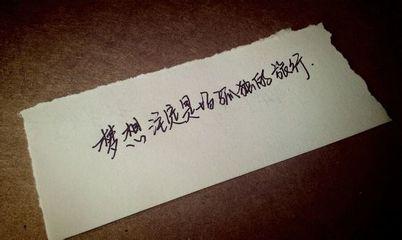 梦想注定是孤独的旅行.